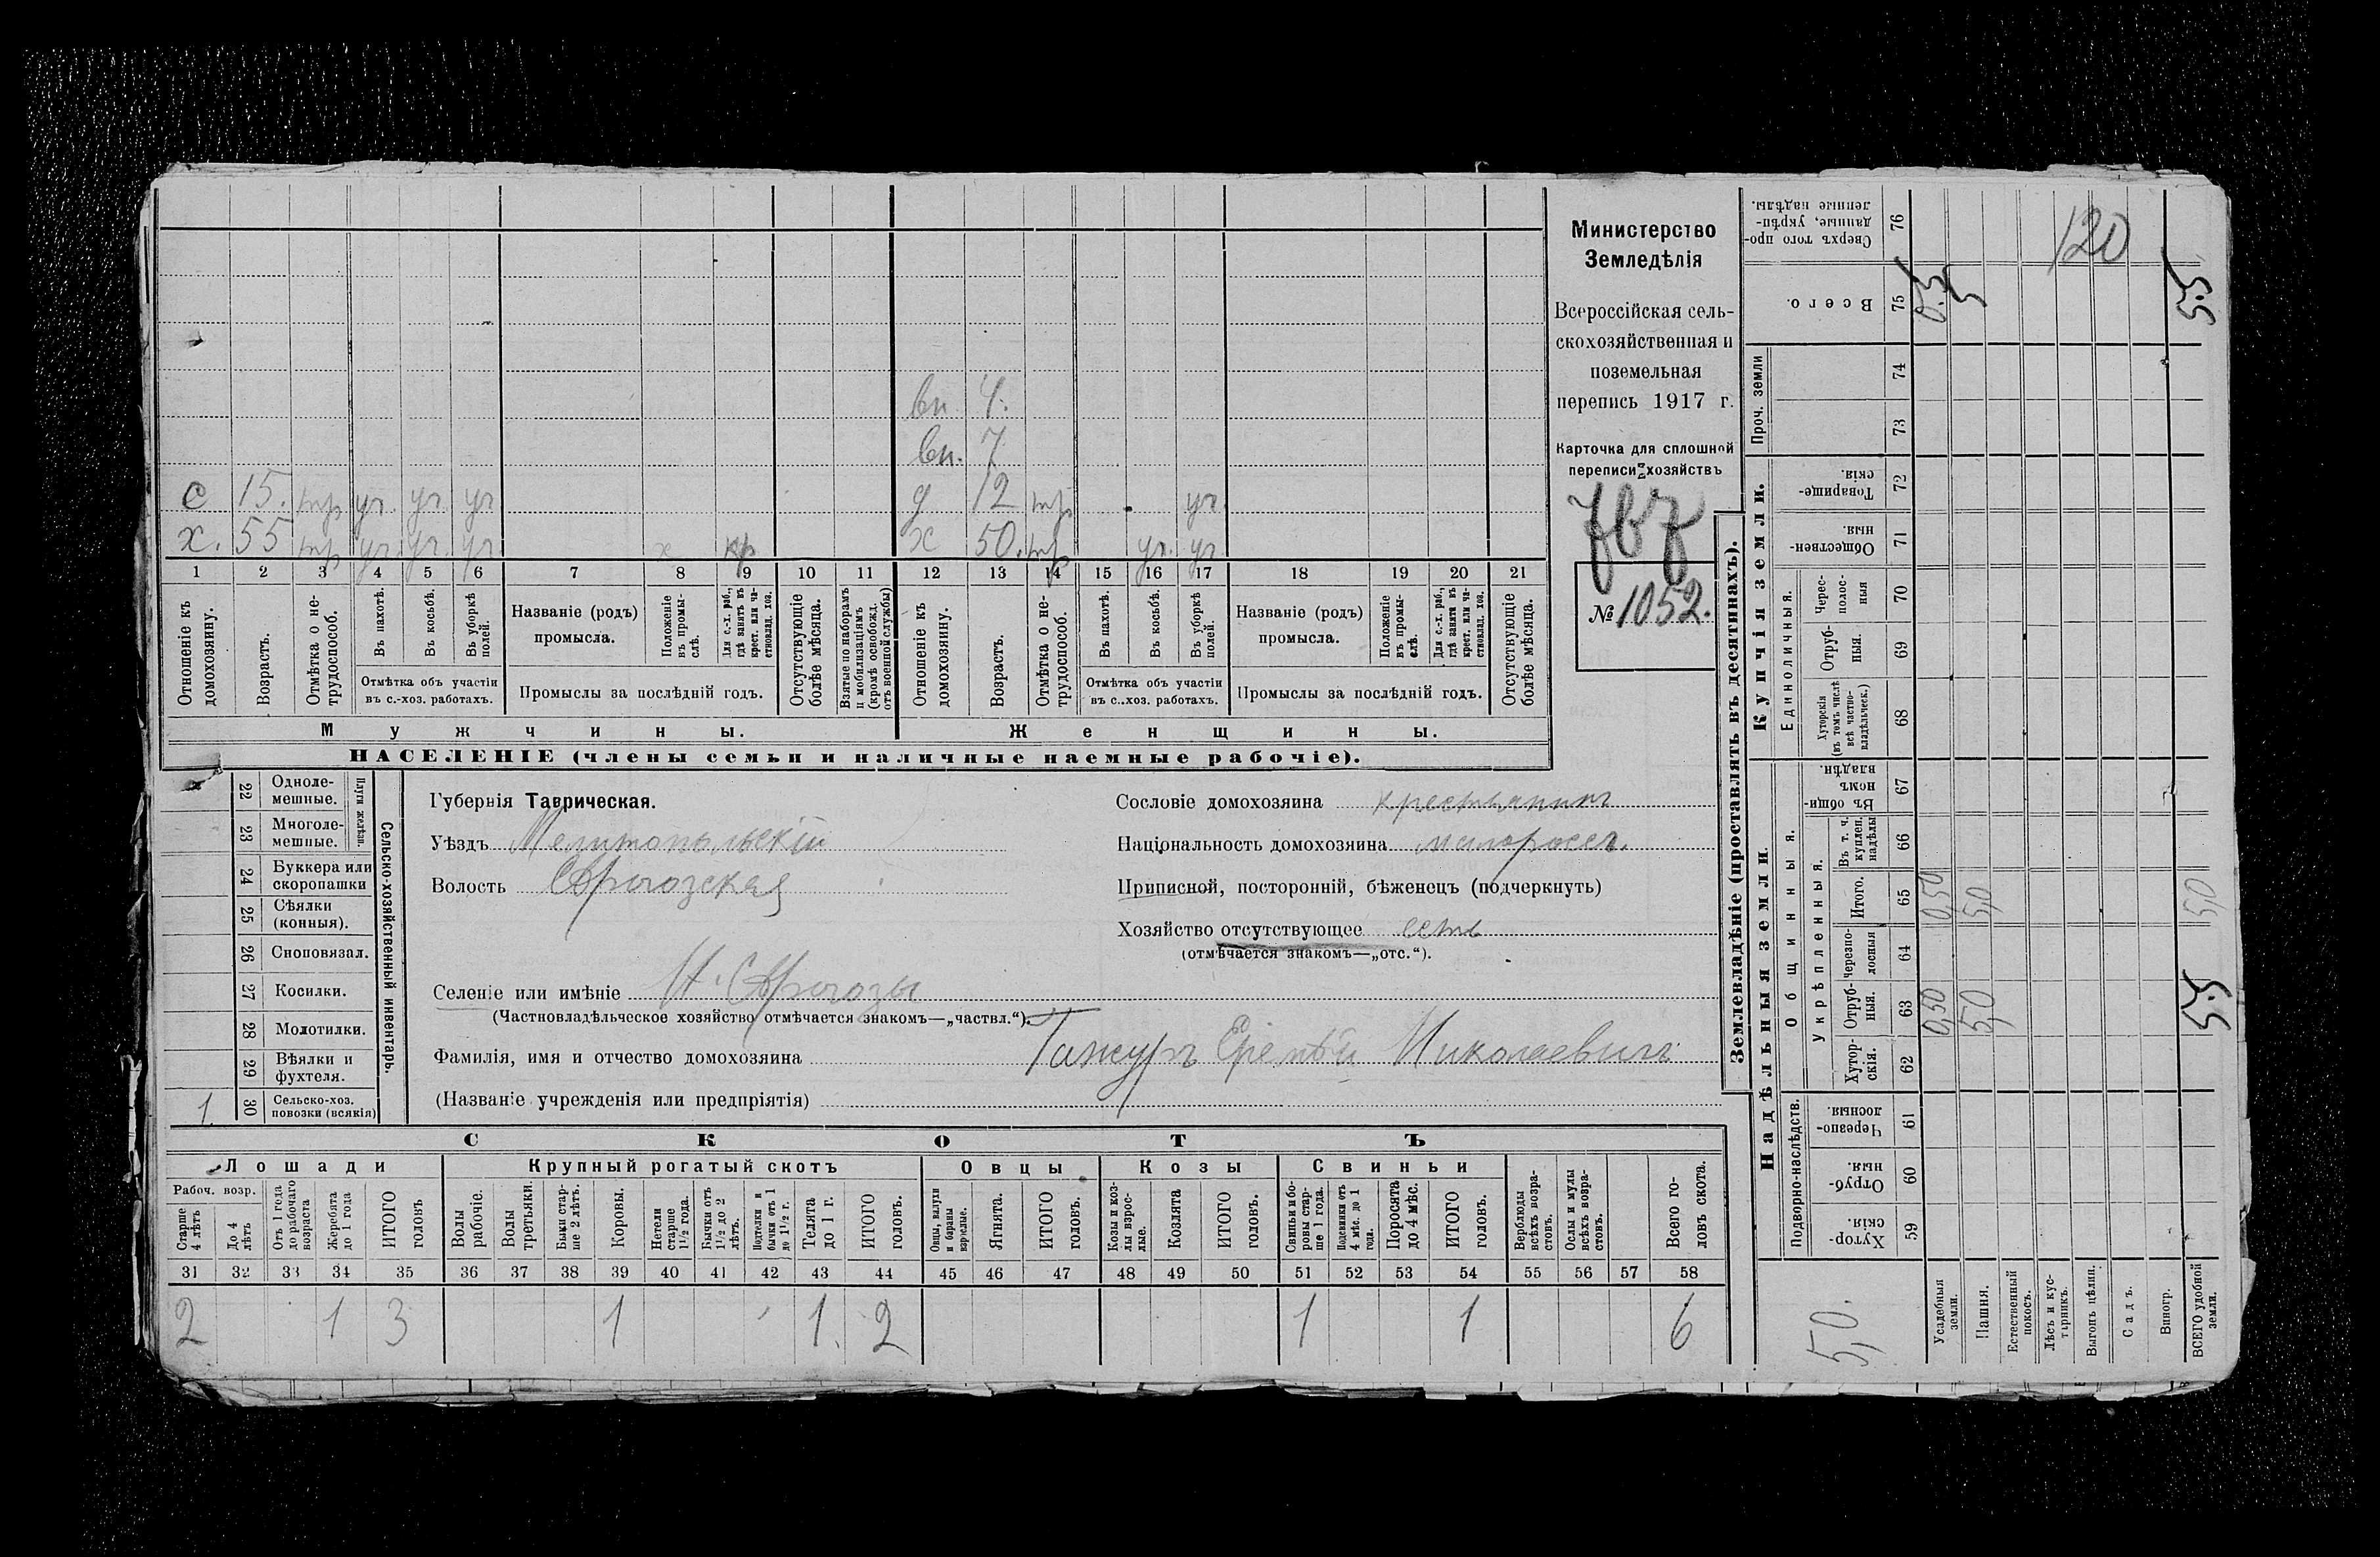 вн. 4.
вн. 7
с 15. тр уч. уч. уч д 12 тр уч.
х. 55 тр уч. уч. уч. х кр х 50. тр уч. уч.
1 2 3 4 5 6 7 8 9 10 11 12 13 14 15 16 17 18 19 20 21
Отношеніе къ домохозяину.
Возрастъ.
Отмѣтка о нетрудоспособ.
Въ пахотѣ.
Въ косьбѣ.
Въ уборкѣ полей.
Отмѣтка объ участіи
въ с.-хоз. работахъ.
Названіе (родъ)
промысла.
Положеніе въ промыслѣ.
Для с.-х. раб., гдѣ занятъ въ крест. или частновлад. хоз.
Промыслы за послѣдній годъ.
Отсутствующіе болѣе мѣсяца.
Взятые по наборамъ и мобилизаціямъ (кромѣ освобожд. отъ военной службы)
Отношеніе къ домохозяину.
Возрастъ.
Отмѣтка о нетрудоспособ.
Въ пахотѣ.
Въ косьбѣ.
Въ уборкѣ полей.
Отмѣтка объ участіи
въ с.-хоз. работахъ.
Названіе (родъ)
промысла.
Положеніе въ промыслѣ.
Для с.-х. раб., гдѣ занятъ въ крест. или частновлад. хоз.
Промыслы за послѣдній годъ.
Отсутствующіе болѣе мѣсяца.
Мужчины. Женщины.
НАСЕЛЕНІЕ (члены семьи и наличные наемные рабочіе).
Министерство
Земледѣлія
Всероссійская сель-
скохозяйственная и
поземельная
перепись 1917 г.
Карточка для сплошной
переписи хозяйствъ
№ 1052.
22 Одноле-
мешные.
23 Многоле-
мешные.
Плуги желѣзн.
24 Буккера или
скоропашки
25 Сѣялки
(конныя).
26 Сноповязал.
27 Косилки.
28 Молотилки.
29 Вѣялки и
фухтеля.
1. 30 Сельско-хоз.
повозки (всякія)
Сельско-хозяйственный инвентарь.
Губернія Таврическая.
Уѣздъ Мелитопольскій
Волость
Селеніе или имѣніе
(Частновладѣльческое хозяйство отмѣчается знакомъ—„частвл.“).
Фамилія, имя и отчество домохозяина Николаевичъ
(Названіе учрежденія или предпріятія)
Сословіе домохозяина крестьянинъ
Національность домохозяина малороссъ.
Приписной, посторонній, бѣженецъ (подчеркнуть)
Хозяйство отсутствующее есть
(отмѣчается знакомъ—„отс.“).
СКОТЪ
Лошади Крупный рогатый скотъ Овцы Козы Свиньи
Рабоч. возр.
Старше 4 лѣтъ
До 4 лѣтъ
Отъ 1 года до рабочаго возраста
Жеребята до 1 года
ИТОГО головъ
Волы рабочіе.
Волы третьяки.
Быки старше 2 лѣтъ.
Коровы.
Нетели старше 1½ года.
Бычки отъ 1½ до 2 лѣтъ.
Подтелки и бычки отъ 1 до 1½ г.
Телята до 1 г.
ИТОГО головъ.
Овцы, валухи и бараны взрослые.
Ягнята.
ИТОГО головъ.
Козы и козлы взрослые.
Козлята
ИТОГО головъ.
Свиньи и боровы старше 1 года.
Подсвинки отъ 4 мѣс. до 1 года.
Поросята до 4 мѣс.
ИТОГО головъ.
Верблюды всѣхъ возрастовъ.
Ослы и мулы всѣхъ возрастовъ.
Всего головъ скота.
31 32 33 34 35 36 37 38 39 40 41 42 43 44 45 46 47 48 49 50 51 52 53 54 55 56 57 58
2 1 3 1 1. 2 1 1 6
Землевладѣніе (проставлять въ десятинахъ).
Надѣльныя земли. Купчія земли.
Проч. земли
Подворно-наслѣдств.
Общинныя.
Укрѣпленныя.
Единоличныя.
Сверхъ того проданные, укрѣпленные надѣлы. 76 120
Всего. 75 0.5 5 5.5
74
73
Товарищескія. 72
Общественныя. 71
Чересполосныя 70
Отрубныя. 69
Хуторскія (въ томъ числѣ всѣ частновладѣльческ.) 68
Въ общиномъ владѣн. 67
Въ т. ч. куплен. надѣлы 66
Итого. 65 0,50 5,0 5,0
Черезполосныя 64
Отрубныя. 63 0,50 5,0 5.5
Хуторскія. 62
Черезполосныя. 61
Отрубныя. 60
Хуторскія. 59
5,0.
Усадебныя земли.
Пашня.
Естественный покосъ.
Лѣсъ и кустарникъ.
Выгонъ цѣлин.
Садъ.
Виногр.
ВСЕГО удобной земли.